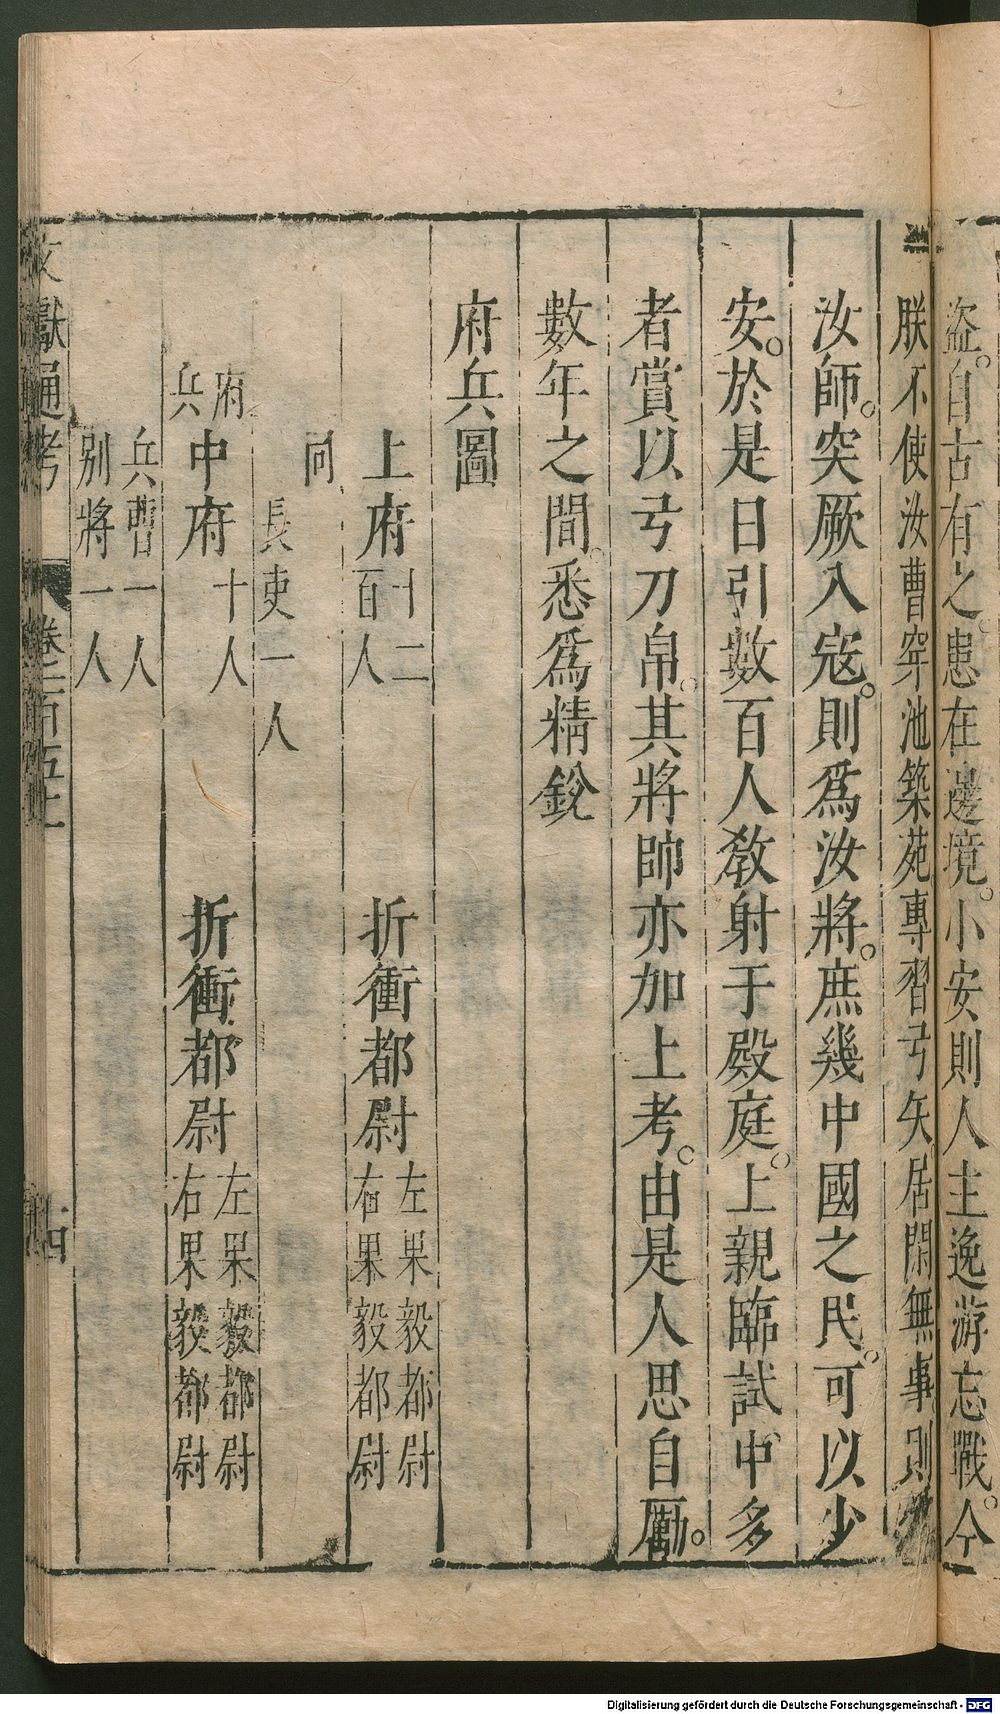 盜。自古有之。患在邊境。小安則人主逸游忘戰。今
朕不使汝曹穿池築苑專習弓矢居閑無事則
汝師。突厥入寇。則爲汝將。庶幾中國之民。可以少
安。於是日引數百人敎射于殿庭。上親臨試。中多
者賞以弓刀帛。其將帥亦加上考。由是人思自勵。
數年之間。悉爲精銳
府兵圖
上府十二
百人
折衝都尉左果毅都尉
右果毅都尉
同
長吏一人
府
兵
中府十人
折衝都尉左果毅都尉
右果毅都尉
兵曹一人
别將一人
文獻通考
卷一百五十一
十四
Digitalisierung gefördert durch die Deutsche Forschungsgemeinschaft - DFG